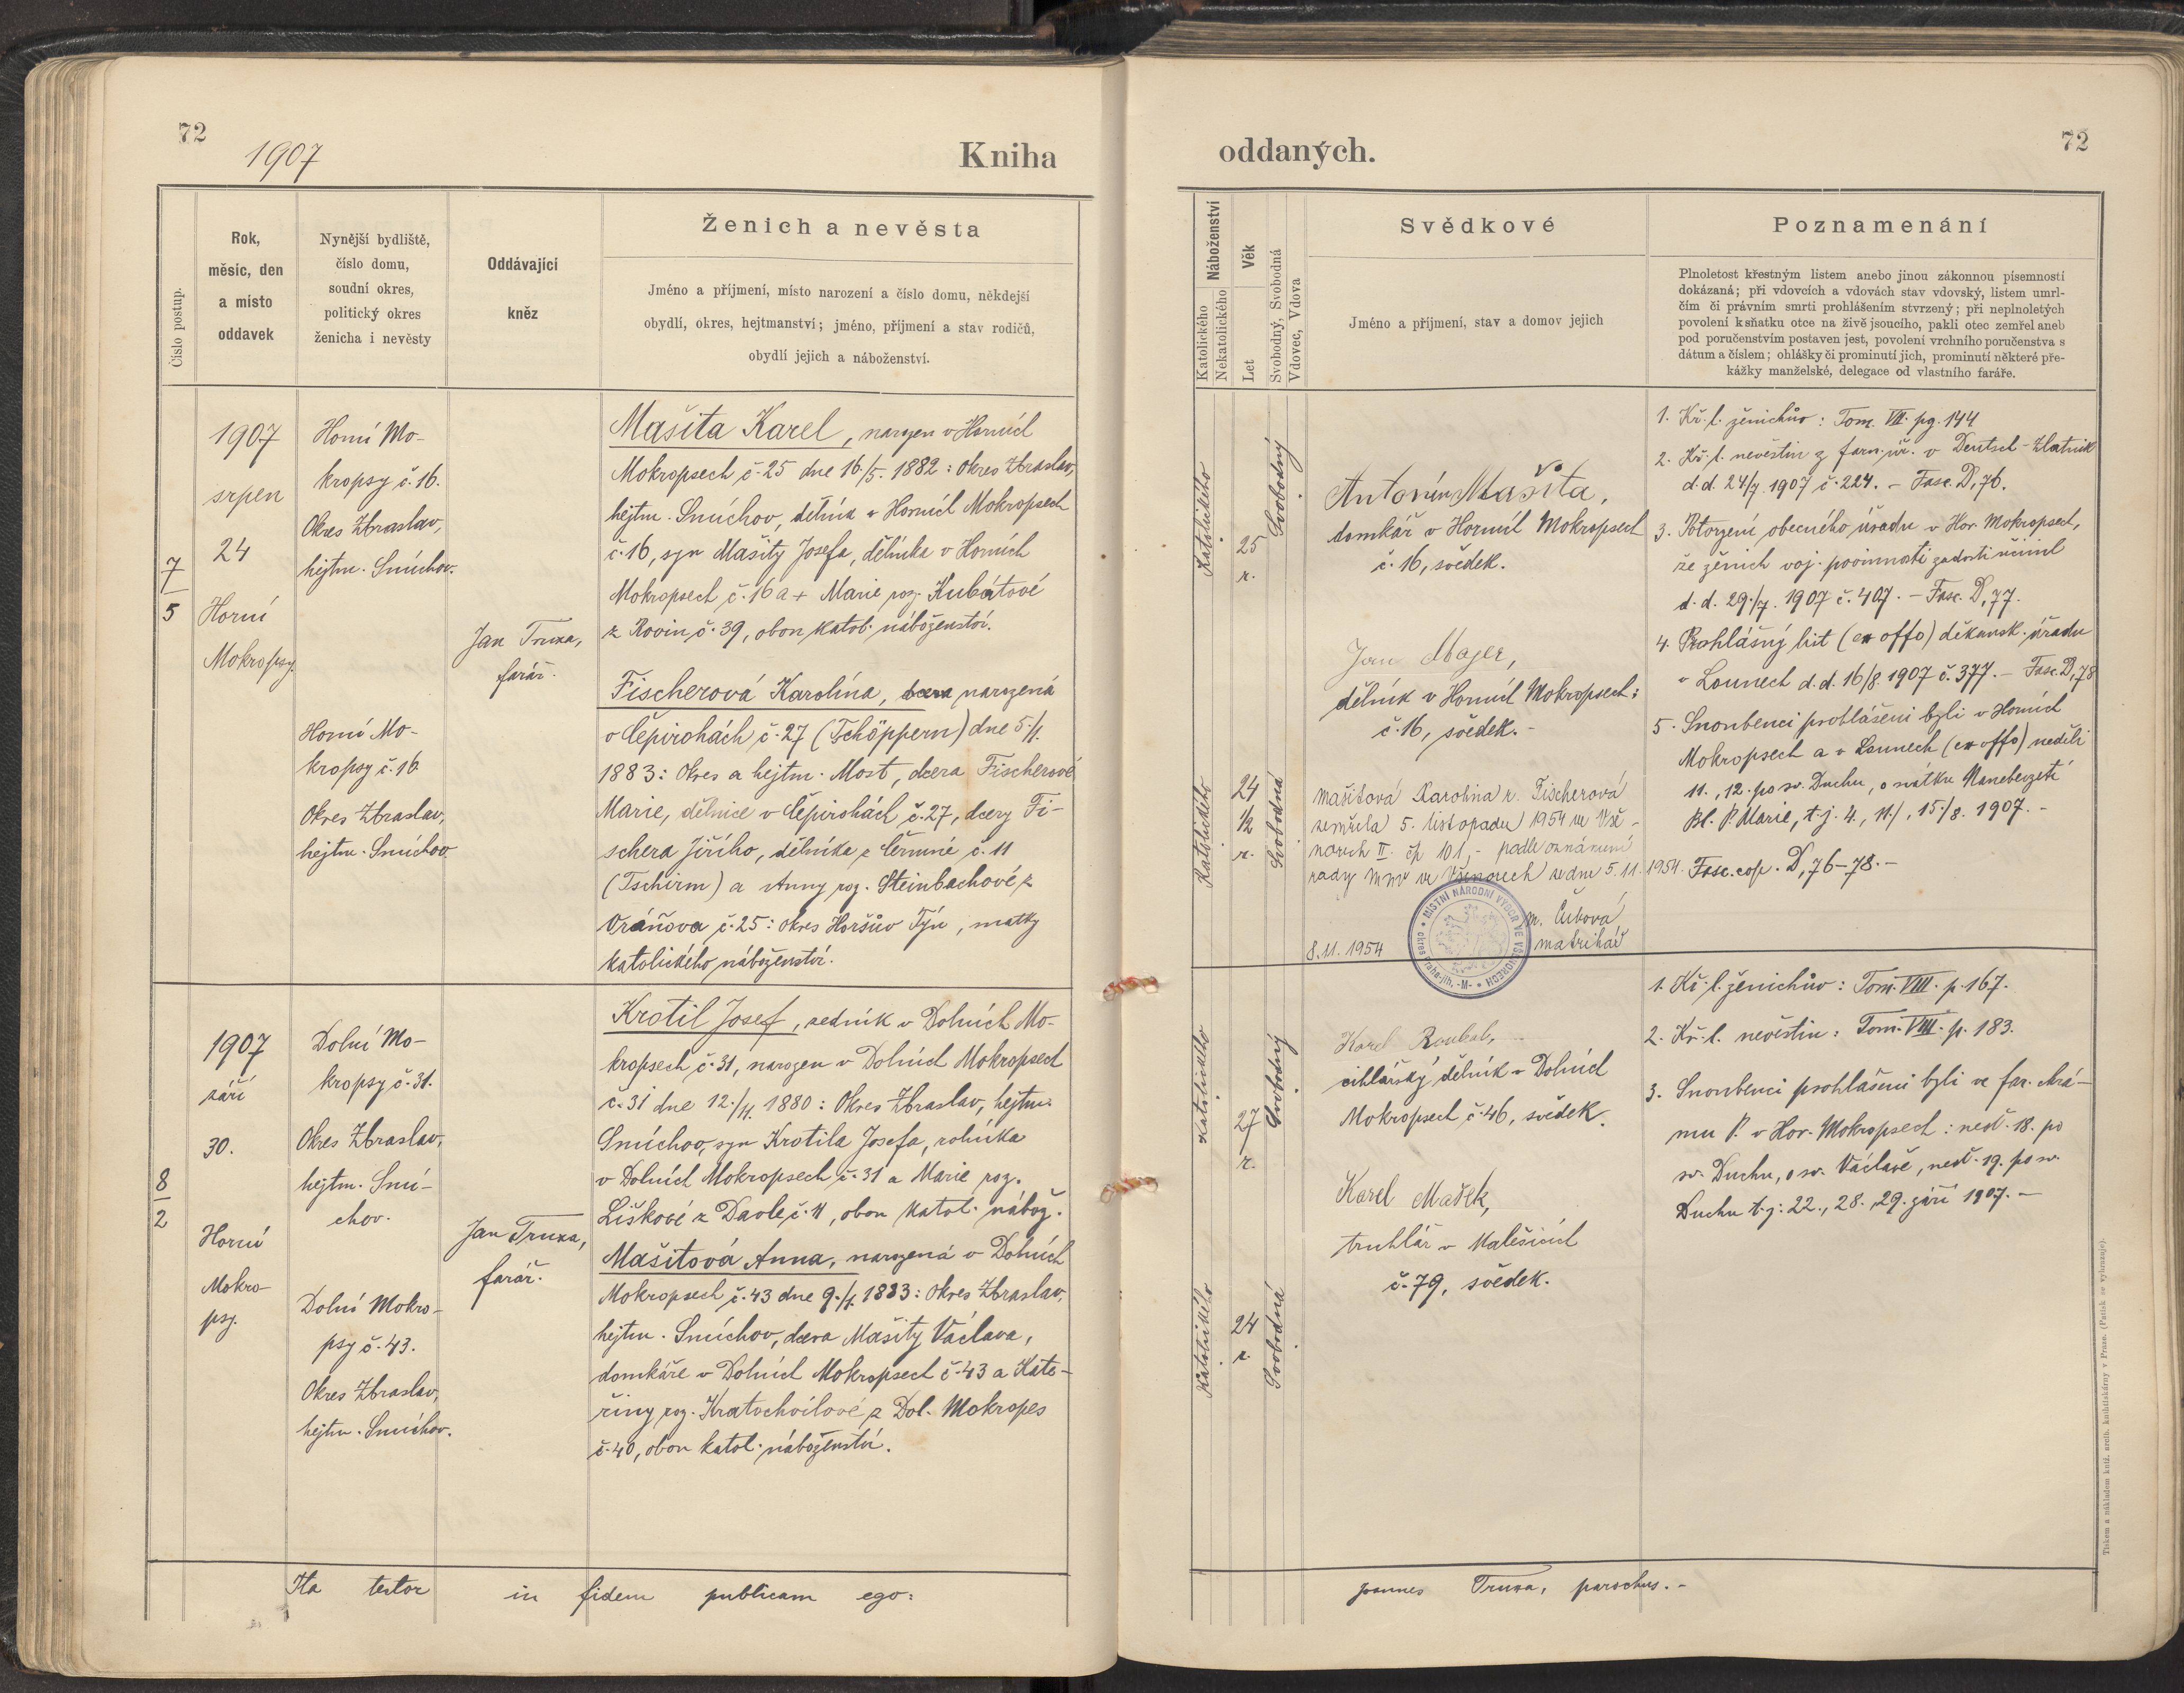 72
1907
Kniha
Číslo postup.
Rok,
měsíc, den
a místo
oddavek
Nynější bydliště,
číslo domu,
soudní okres,
politický okres
ženicha i nevěsty
Oddávající
kněz
Ženich a nevěsta
Jméno a příjmení, místo narození a číslo domu, někdejší
obydlí, okres, hejtmanství; jméno, příjmení a stav rodičů,
obydlí jejich a náboženství.
7
5
1907
srpen
24
Horní
Mokropsy.
Horní Mo-
kropsy č. 16.
Okres Zbraslav,
hejtm. Smíchov.
Horní Mo-
kropsy č. 16
Okres Zbraslav,
hejtm. Smíchov
Jan Truxa,
farář.
Mašita Karel, narozen v Horních
Mokropsech č. 25 dne 16./5. 1882: Okres Zbraslav,
hejtm. Smíchov, dělník v Horních Mokropsech
č. 16, syn Mašity Josefa, dělníka v Horních
Mokropsech č. 16 a + Marie roz. Kubátové
z Rovin č. 39, obou katol. náboženství.
Fischerová Karolína, dcera narozená
v Čepirohách č. 27 (Tschöppern) dne 5./1.
1883: Okres a hejtm. Most, dcera Fischerové
Marie, dělnice v Čepirohách č. 27, dcery Fi-
schera Jiřího, dělníka z Čermné č. 11
(Tschirm) a Anny roz. Steinbachové z
Vráňova č. 25: okres Horšův Týn, matky
katolického náboženství.
8
2
1907
září
30.
Horní
Mokro-
psy.
Dolní Mo-
kropsy č. 31.
Okres Zbraslav,
hejtm. Smí-
chov.
Dolní Mokro-
psy č. 43.
Okres Zbraslav,
hejtm. Smíchov.
Jan Truxa,
farář.
Krotil Josef, zedník v Dolních Mo-
kropsech č. 31, narozen v Dolních Mokropsech
č. 31 dne 12./11. 1880: Okres Zbraslav, hejtm.
Smíchov, syn Krotila Josefa, rolníka
v Dolních Mokropsech č. 31 a Marie roz.
Liškové z Davle č. 11, obou katol. nábož.
Mašitová Anna, narozená v Dolních
Mokropsech č. 43 dne 9./1. 1883: Okres Zbraslav,
hejtm. Smíchov, dcera Mašity Václava,
domkáře v Dolních Mokropsech č. 43 a Kate-
řiny roz. Kratochvílové z Dol. Mokropes
č. 40, obou katol. náboženství.
Ita testor in fidem publicam ego:
oddaných.
72
Náboženství
Katolického
Nekatolického
Věk
Let
Svobodný, Svobodná
Vdovec, Vdova
Svědkové
Jméno a příjmení, stav a domov jejich
Poznamenání
Plnoletost křestným listem anebo jinou zákonnou písemností
dokázaná; při vdovcích a vdovách stav vdovský, listem umrl-
čím či právním smrti prohlášením stvrzený; při neplnoletých
povolení k sňatku otce na živě jsoucího, pakli otec zemřel aneb
pod poručenstvím postaven jest, povolení vrchního poručenstva s
dátum a číslem; ohlášky či prominutí jich, prominutí některé pře-
kážky manželské, delegace od vlastního faráře.
Katolického
25
r.
Svobodný
Katolického
24
1/2
r.
Svobodná
Antonín Mašita,
domkář v Horních Mokropsech
č. 16, svědek.
Jan Majer,
dělník v Horních Mokropsech:
č. 16, svědek. -
Mašitová Karolina r. Fischerová
zemřela 5. listopadu 1954 ve Vše-
norech II. čp 101, - podle oznámení
rady MNV ve Všenorech ze dne 5.11.1954.
M. Čubová
matrikář
8.11.1954
MÍSTNÍ NÁRODNÍ VÝBOR VE VŠENORECH
okres Praha-jih. -M-
1. Kř. l. ženichův: Tom. VII. pg. 144
2. Kř. l. nevěstin z farn. úř. v Deutsch-Zlatnik
d. d. 24/7. 1907 č. 224. - Fasc. D, 76.
3. Potvrzení obecného úřadu v Hor. Mokropsech,
že ženich voj. povinnosti zadosti učinil
d. d. 29./7. 1907 č. 407. - Fasc. D, 77.
4. Prohlášný list (ex offo) děkansk. úřadu
v Lounech d. d. 16/8. 1907 č. 377. - Fasc. D, 78
5. Snoubenci prohlášeni byli v Horních
Mokropsech a v Lounech (ex offo) neděli
11., 12. po sv. Duchu, o svátku Nanebevzetí
Bl. P. Marie, t. j. 4., 11/, 15./8. 1907. -
Fasc. cop. D, 76-78. -
Katolického
27
r.
Svobodný
Katolického
24
r.
Svobodná
Karel Roubal,
cihlářský dělník v Dolních
Mokropsech č. 46, svědek.
Karel Mašek,
truhlář v Malešicích
č. 79, svědek.
1. Kř. l. ženichův: Tom. VIII. p. 167.
2. Kř. l. nevěstin: Tom. VIII. p. 183.
3. Snoubenci prohlášeni byli ve far. chrá-
mu P. v Hor. Mokropsech: ned. 18. po
sv. Duchu, o sv. Václavě, ned. 19. po sv.
Duchu t. j: 22., 28., 29. září 1907. -
Joannes Truxa, parochus. -
Tiskem a nákladem kníž. arcib. knihtiskárny v Praze. (Patisk se vyhrazuje).